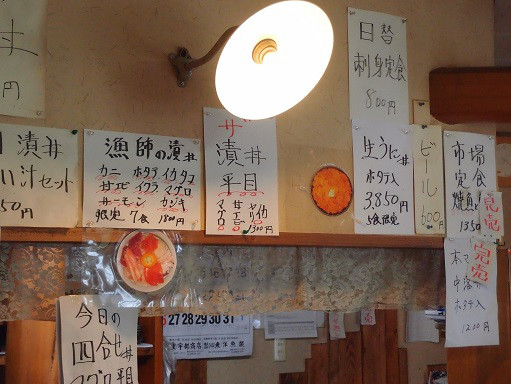 丼
円
漬丼
汁セット
50円
漁師の漬丼
カニ ホタテ イカ タコ
甘エビ イクラ マグロ
サーモン カジキ
限定 7食 1800円
漬丼
平目
1300円
日替
刺身定食
800円
生うに丼
ホタテ入
3,850
5食限定
ビール
600円
市場
定食
焼魚
1350
完売
完売
中落
ホタテ入
1200円
今日の
四合せ丼
マグロ 平目
27 28 29 30 31